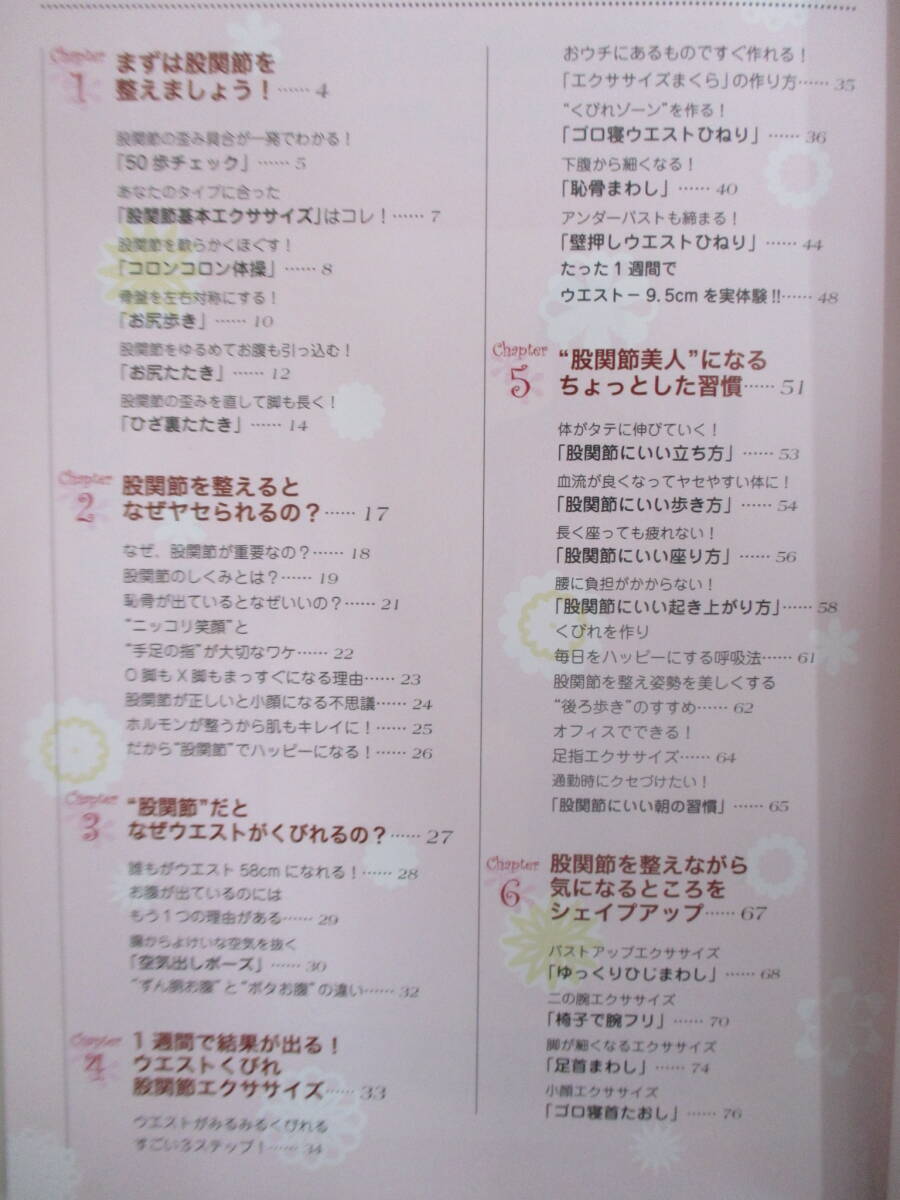 Chapter
1
まずは股関節を
整えましょう！……4
股関節の歪み具合が一発でわかる！
「50歩チェック」……5
あなたのタイプに合った
「股関節基本エクササイズ」はコレ！……7
股関節を軟らかくほぐす！
「コロンコロン体操」……8
骨盤を左右対称にする！
「お尻歩き」……10
股関節をゆるめてお腹も引っ込む！
「お尻たたき」……12
股関節の歪みを直して脚も長く！
「ひざ裏たたき」……14
Chapter
2
股関節を整えると
なぜヤセられるの？……17
なぜ、股関節が重要なの？……18
股関節のしくみとは？……19
恥骨が出ているとなぜいいの？……21
“ニッコリ笑顔”と
“手足の指”が大切なワケ……22
O脚もX脚もまっすぐになる理由……23
股関節が正しいと小顔になる不思議……24
ホルモンが整うから肌もキレイに！……25
だから“股関節”でハッピーになる！……26
Chapter
3
“股関節”だと
なぜウエストがくびれるの？……27
誰もがウエスト58cmになれる！……28
お腹が出ているのには
もう1つの理由がある……29
腸からよけいな空気を抜く
「空気出しポーズ」……30
“ずん胴お腹”と“ポタお腹”の違い……32
Chapter
4
1週間で結果が出る！
ウエストくびれ
股関節エクササイズ……33
ウエストがみるみるくびれる
すごい3ステップ！……34
おウチにあるものですぐ作れる！
「エクササイズまくら」の作り方……35
“くびれゾーン”を作る！
「ゴロ寝ウエストひねり」……36
下腹から細くなる！
「恥骨まわし」……40
アンダーバストも締まる！
「壁押しウエストひねり」……44
たった1週間で
ウエスト－9.5cmを実体験!!……48
Chapter
5
“股関節美人”になる
ちょっとした習慣……51
体がタテに伸びていく！
「股関節にいい立ち方」……53
血流が良くなってヤセやすい体に！
「股関節にいい歩き方」……54
長く座っても疲れない！
「股関節にいい座り方」……56
腰に負担がかからない！
「股関節にいい起き上がり方」……58
くびれを作り
毎日をハッピーにする呼吸法……61
股関節を整え姿勢を美しくする
“後ろ歩き”のすすめ……62
オフィスでできる！
足指エクササイズ……64
通勤時にクセづけたい！
「股関節にいい朝の習慣」……65
Chapter
6
股関節を整えながら
気になるところを
シェイプアップ……67
バストアップエクササイズ
「ゆっくりひじまわし」……68
二の腕エクササイズ
「椅子で腕フリ」……70
脚が細くなるエクササイズ
「足首まわし」……74
小顔エクササイズ
「ゴロ寝首たおし」……76